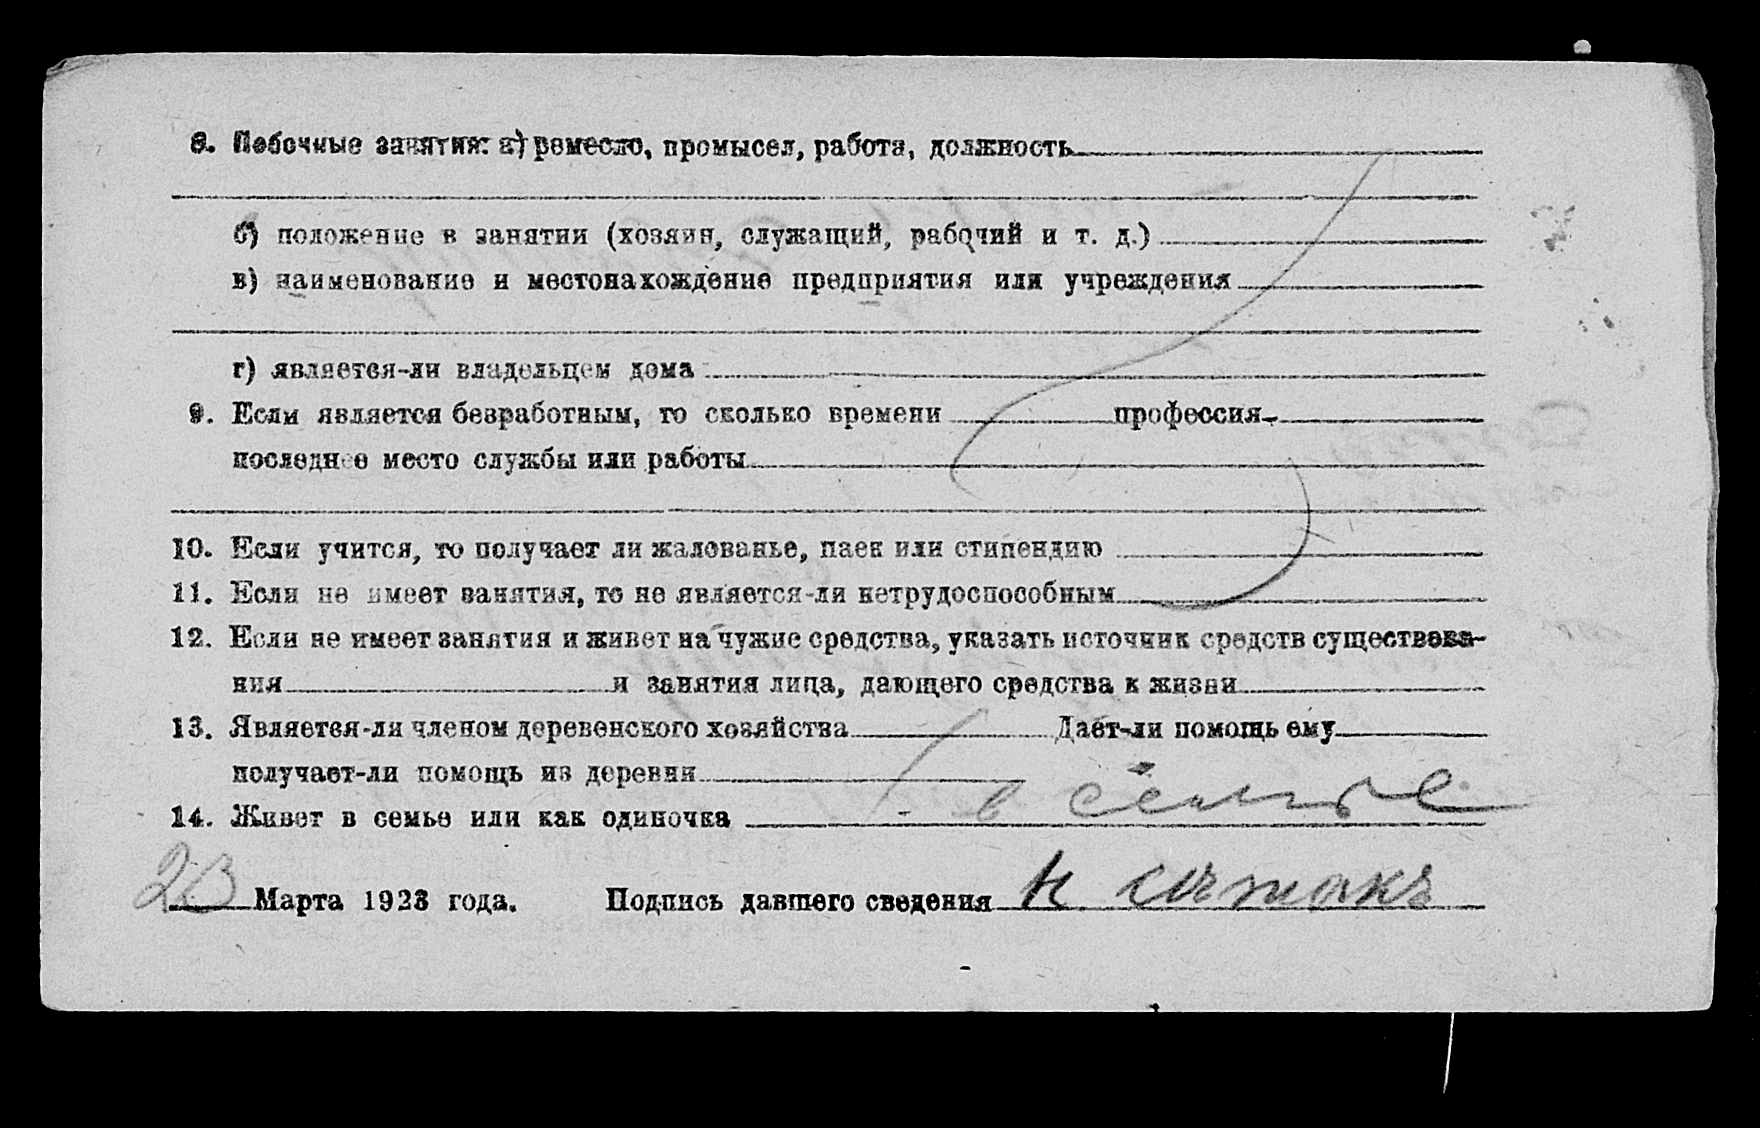 8. Побочные занятия: а) ремесло, промысел, работа, должность
б) положение в занятии (хозяин, служащий, рабочий и т. д.)
в) наименование и местонахождение предприятия или учреждения
г) является-ли владельцем дома
9. Если является безработным, то сколько времени профессия
последнее место службы или работы
10. Если учится, то получает ли жалованье, паек или стипендию
11. Если не имеет занятия, то не является-ли нетрудоспособным
12. Если не имеет занятия и живет на чужие средства, указать источник средств существова-
ния и занятия лица, дающего средства к жизни
13. Является-ли членом деревенского хозяйства Дает-ли помощь ему
получает-ли помощь из деревни
14. Живет в семье или как одиночка в семье
23 Марта 1923 года. Подпись давшего сведения Н